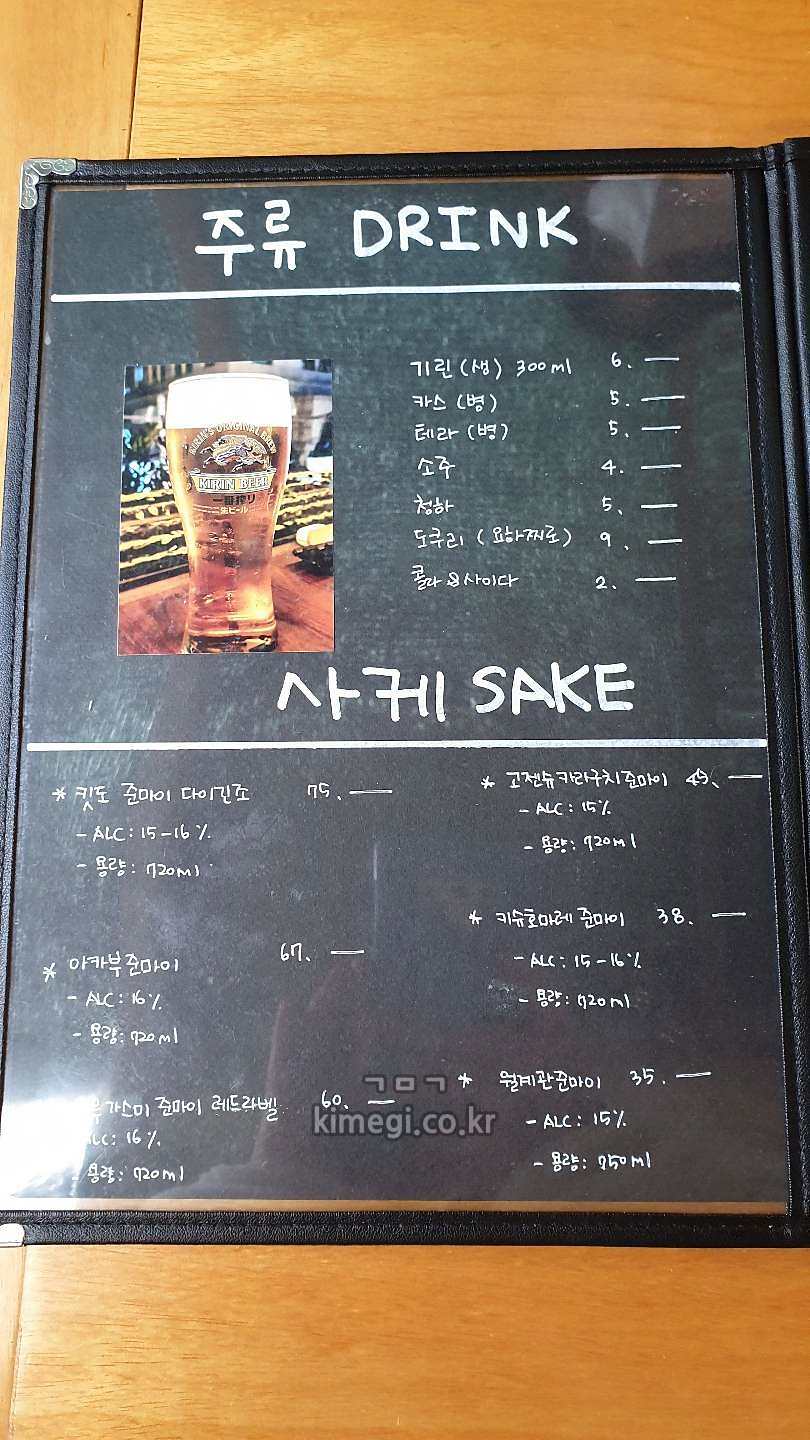 주류 DRINK
기린(생) 300ml 6.—
카스(병) 5.—
테라(병) 5.—
소주 4.—
청하 5.—
도쿠리(요하찌로) 9.—
콜라&사이다 2.—
KIRIN'S ORIGINAL BREW
KIRIN BEER
一番搾り
生ビール
사케 SAKE
* 킷도 준마이 다이긴조 75.—
- ALC: 15-16%
- 용량: 720ml
* 아카부준마이 67.—
- ALC: 16%
- 용량: 720ml
가스미 준마이 레드라벨 60.—
ALC: 16%
- 용량: 720ml
* 고젠슈카라구치준마이 49.—
- ALC: 15%
- 용량: 720ml
* 키슈호마레 준마이 38.—
- ALC: 15-16%
- 용량: 720ml
* 월계관준마이 35.—
- ALC: 15%
- 용량: 750ml
ㄱㅁㄱ
kimegi.co.kr